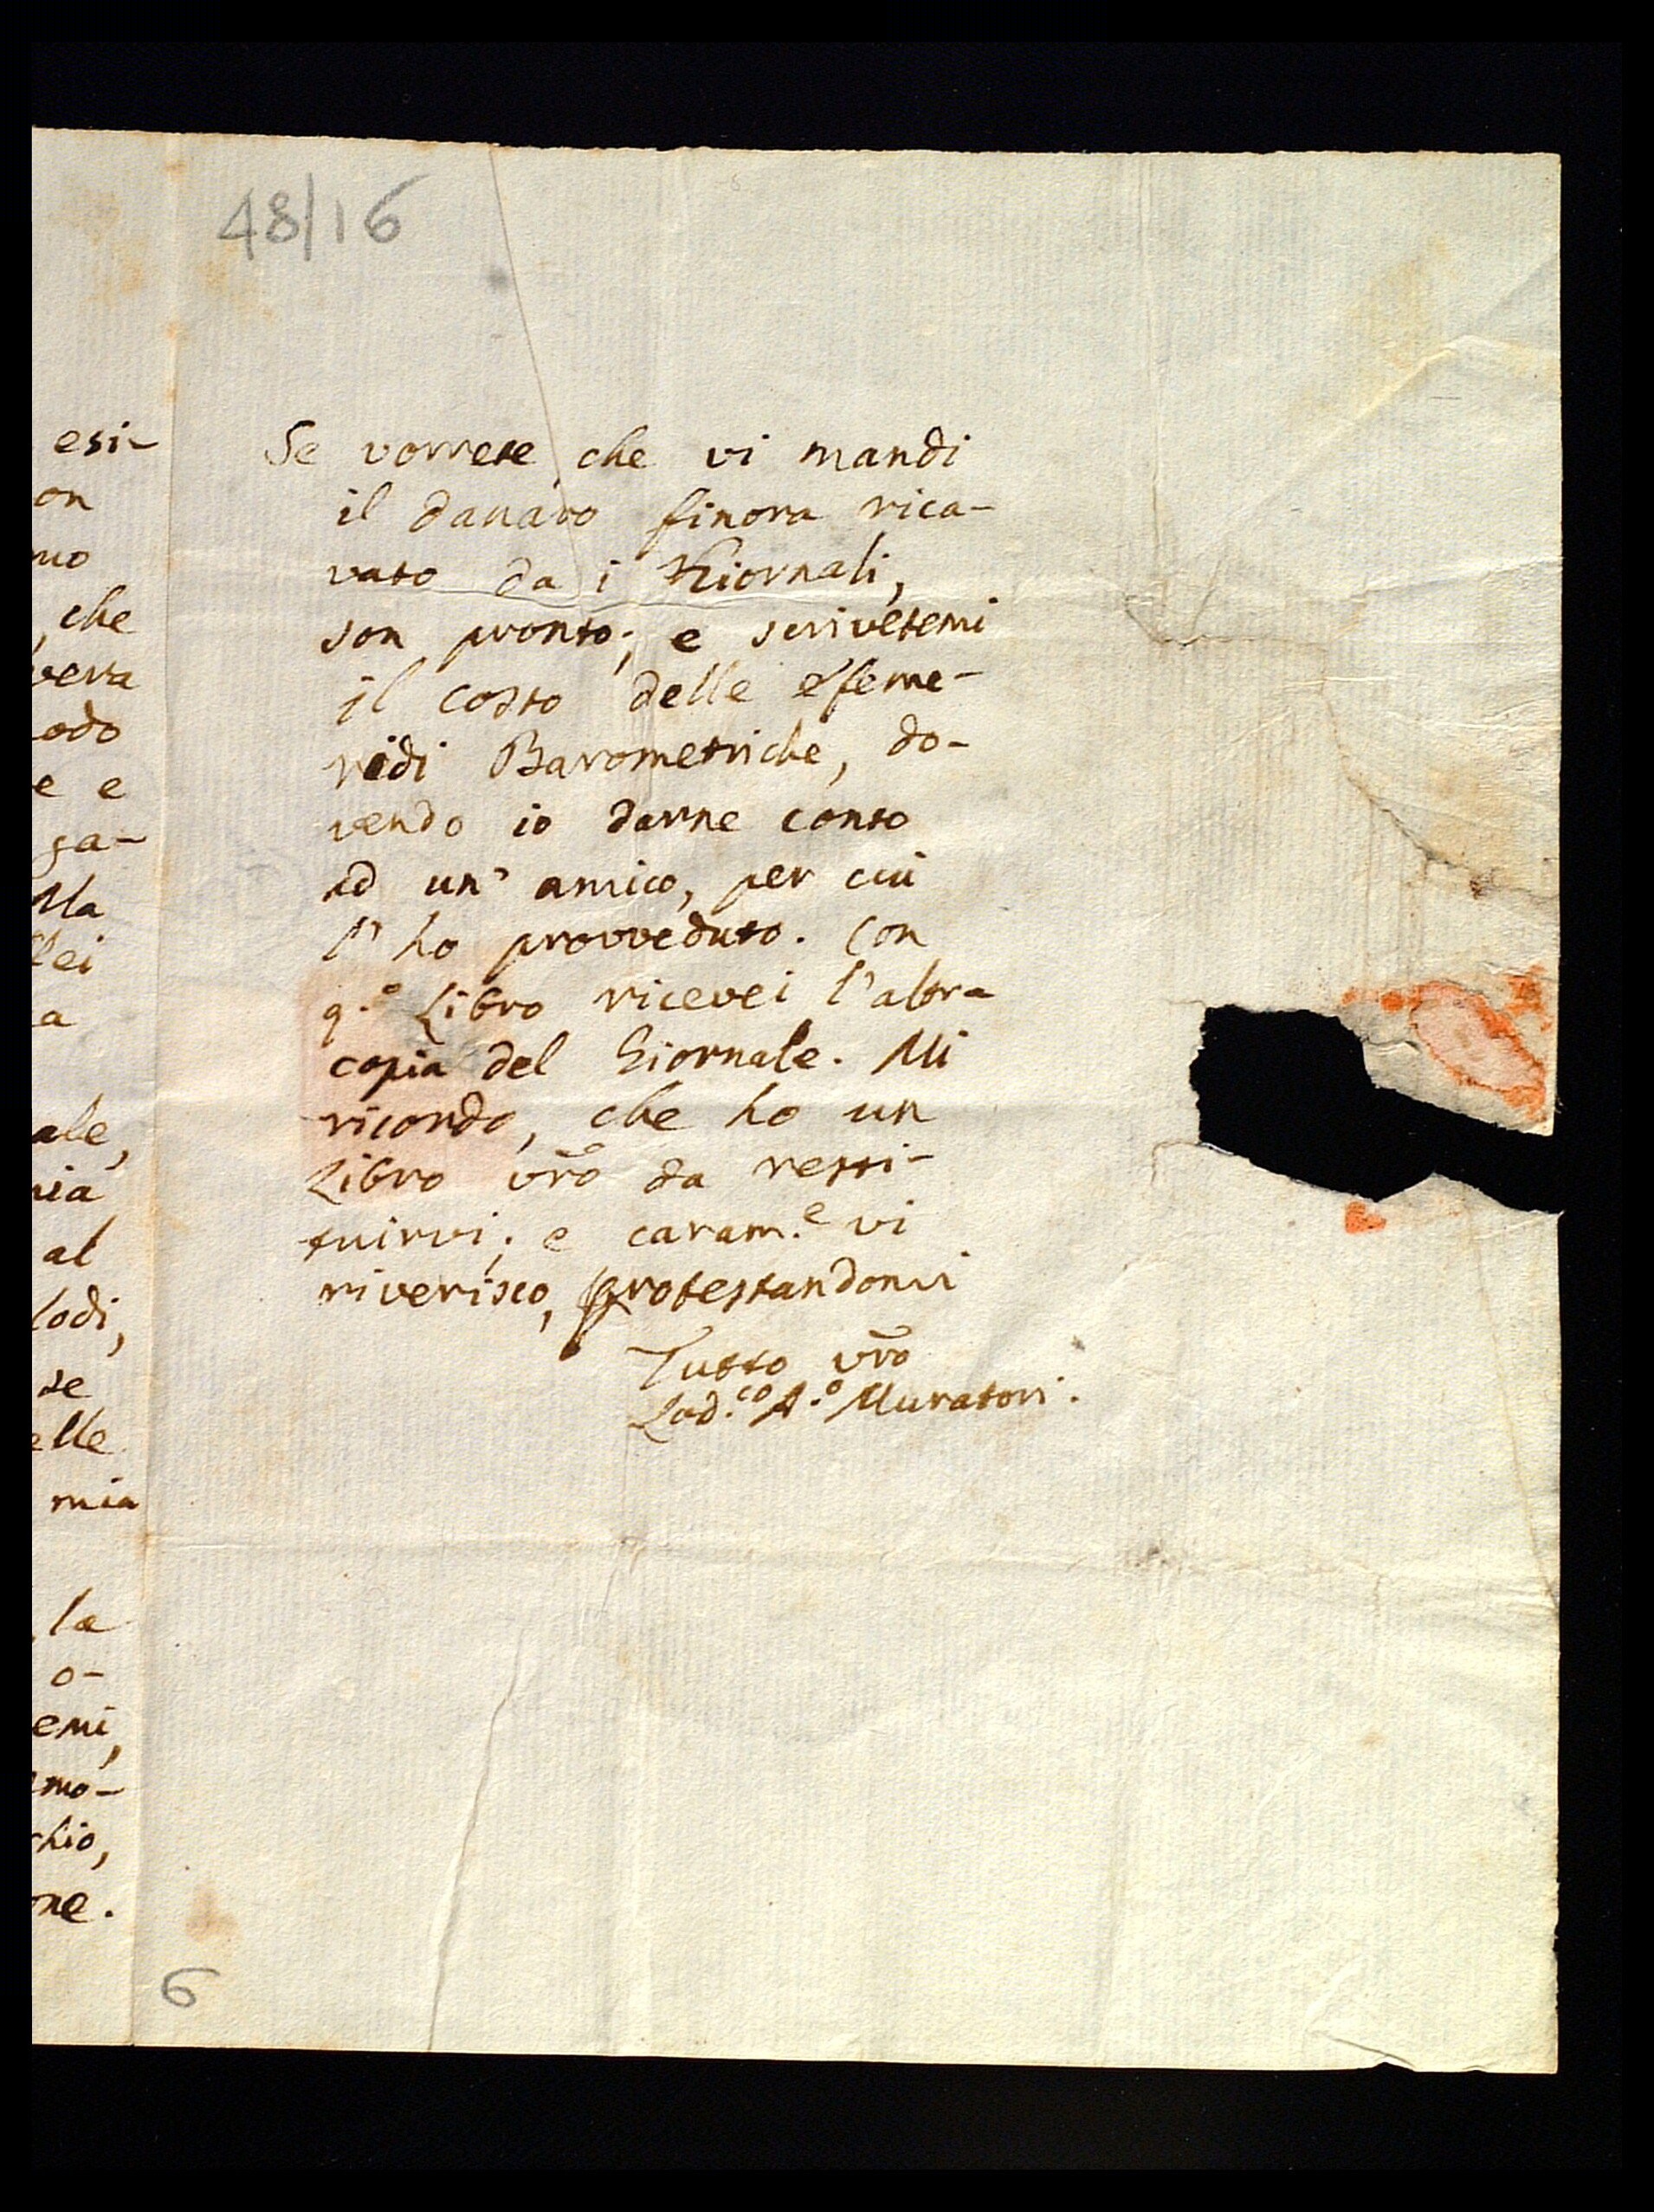 48/16
esi-
on
mo
, che
vera
odo
e e
ga-
Ma
lei
a
ale,
nia
al
lodi,
se
elle
mia
, la
o-
emi,
mo-
chio,
one.
Se vorrete, che vi mandi
il danaro finora rica-
vato da i Giornali,
son pronto; e scrivetemi
il costo delle efeme-
ridi Barometriche, do-
vendo io darne conto
ad un' amico, per cui
l' ho provveduto. Con
q.o Libro ricevei l'altra
copia del Giornale. Mi
ricordo, che ho un
Libro vr̃o da resti-
tuirvi; e caram.e vi
riverisco, protestandomi
Tutto vr̃o
Lod.co A.o Muratori.
6